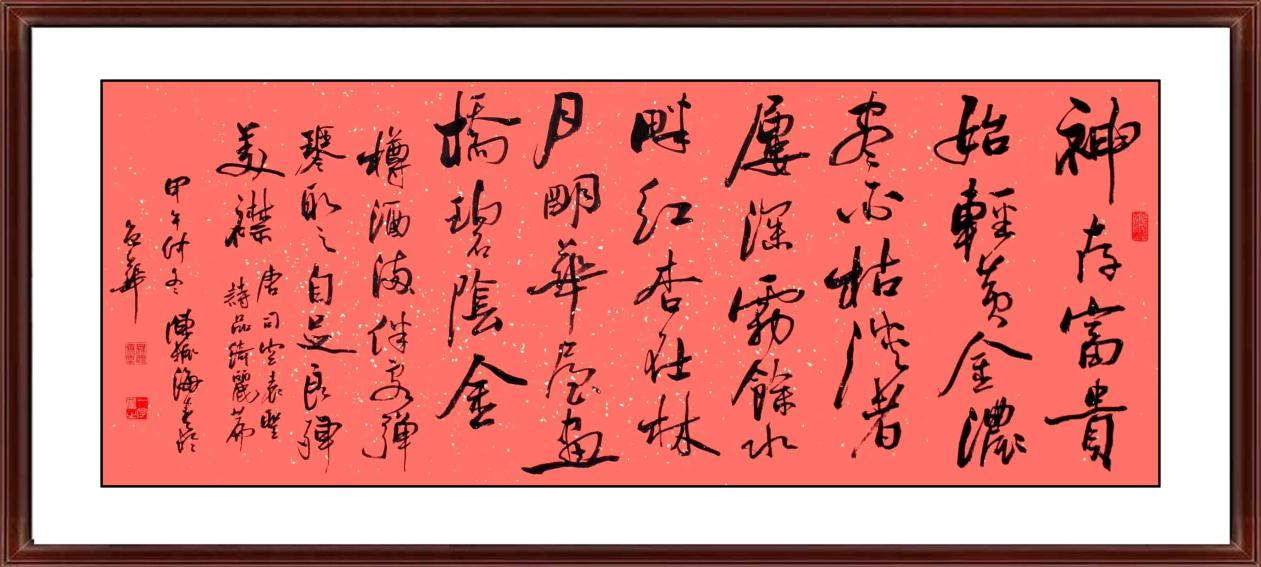 神存富貴
始輕黄金濃
盡必枯淡者
屢深霧餘水
畔紅杏在林
月明華屋畫
橋碧陰金
樽酒滿伴客彈
琴取之自足良殫
美襟
唐司空表聖
詩品綺麗篇
甲午仲冬 陳振海書於
京華